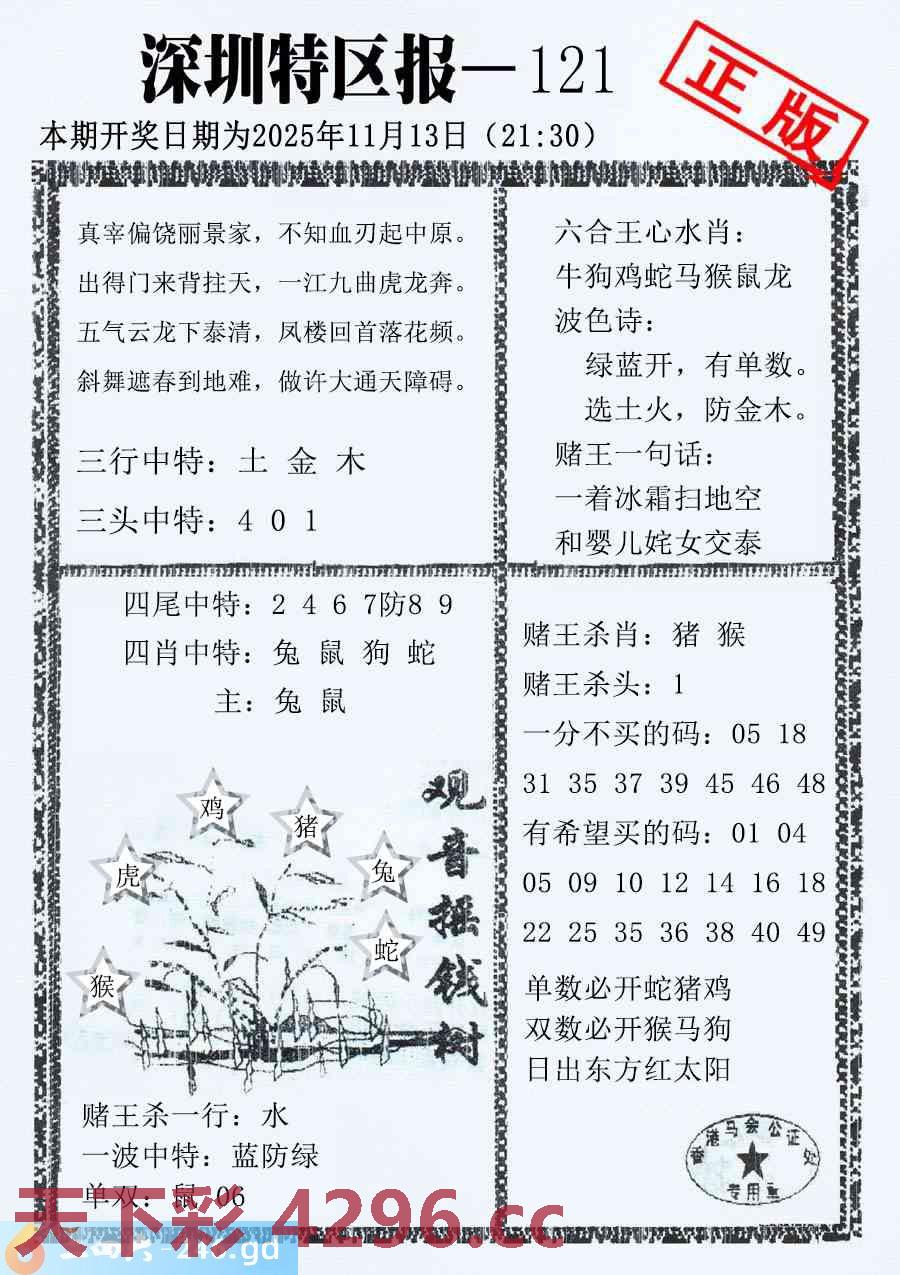 深圳特区报—121
正版
本期开奖日期为2025年11月13日（21:30）
真宰偏饶丽景家，不知血刃起中原。
出得门来背拄天，一江九曲虎龙奔。
五气云龙下泰清，凤楼回首落花频。
斜舞遮春到地难，做许大通天障碍。
三行中特：土 金 木
三头中特：4 0 1
六合王心水肖：
牛狗鸡蛇马猴鼠龙
波色诗：
绿蓝开，有单数。
选土火，防金木。
赌王一句话：
一着冰霜扫地空
和婴儿姹女交泰
四尾中特：2 4 6 7防8 9
四肖中特：兔 鼠 狗 蛇
主：兔 鼠
鸡
猪
虎
兔
蛇
猴
观音摇钱树
赌王杀一行：水
一波中特：蓝防绿
单双：鼠 06
赌王杀肖：猪 猴
赌王杀头：1
一分不买的码：05 18
31 35 37 39 45 46 48
有希望买的码：01 04
05 09 10 12 14 16 18
22 25 35 36 38 40 49
单数必开蛇猪鸡
双数必开猴马狗
日出东方红太阳
香港马会公证处
专用章
天下彩 4296.cc